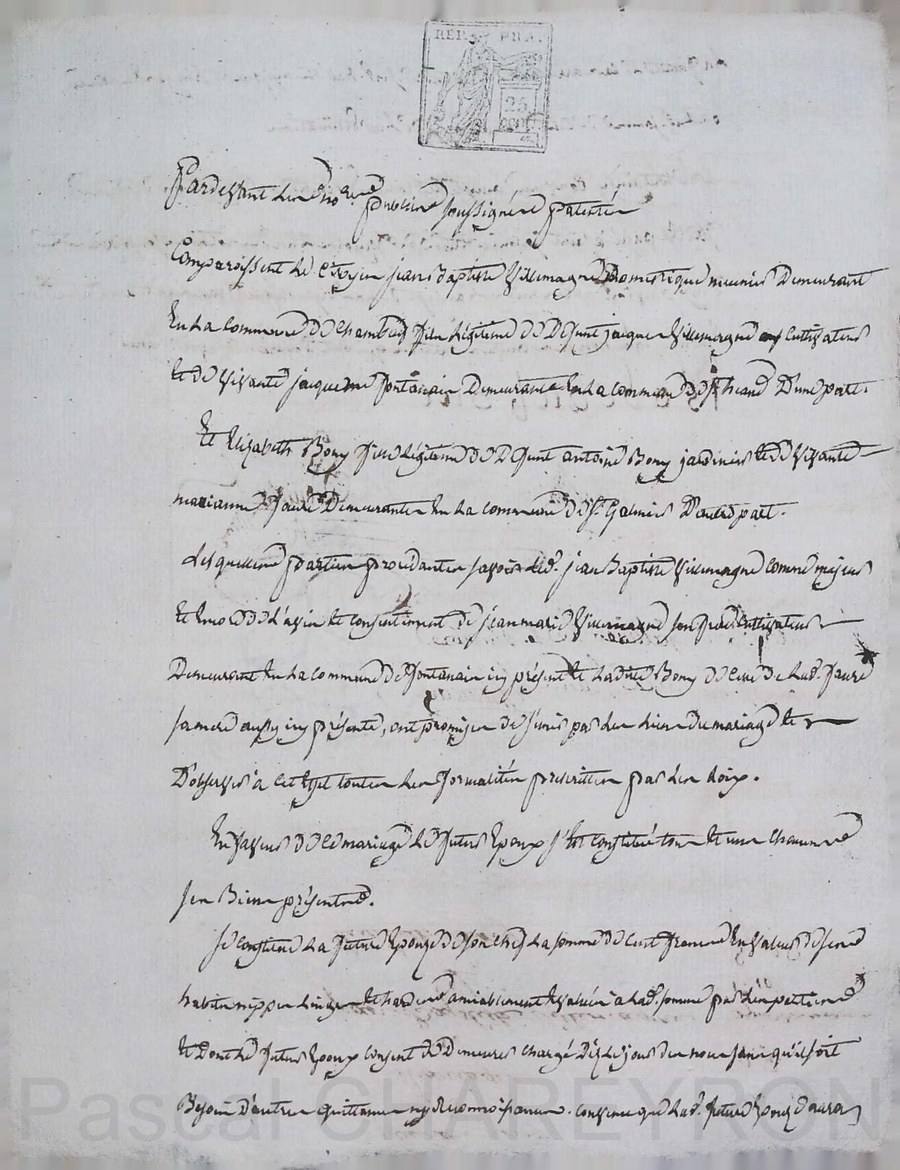 REP. FRA.
25
CENT
Pardevant les no.res publics soussignés patentés
Comparaissent le Citoyen jean Baptiste Villemagne Domestique meunier Demeurant
En la Commune de Chambles fils Légitime de Défunt jacques Villemagne Cultivateur
Et de Vivante jacqueme fontanain Demeurante En la Commune de D'une part.
Et Elizabeth Bony fille Légitime de Défunt antoine Bony jardinier Et de Vivante
marianne faure Demeurantes En La Commune de St. Galmier D'autre part.
Lesquelles parties procédantes savoir led. jean Baptiste Villemagne Comme majeur
Et de L'avis Et Consentement de jean marie Villemagne son frere Cultivateur
Demeurant En La Commune de fontanain icy présent Et Ladite Bony de Celui de Lad. faure
sa mere aussy icy présente, ont promis de s'unir par les Liens du mariage Et
D'observer à Cet Effet toutes Les formalités prescrittes par Les Loix.
En faveur de Ce mariage Le futur Epoux s'est Constitué tous Et uns Chacuns
ses Biens présents.
Se Constitue La future Epouze de son Chef La somme de Cent francs En Valeur de ses
habits nippes Linges Et hardes amiablement Evalués à Lad. somme par Les parties
Et Dont Le futur Epoux Consent de Demeurer Chargé Dès Le jour des noces sans qu'il soit
Besoin D'autres quittances ny reconnoissances. Convenu que Lad. future Epouze aura
Pascal CHAREYRON